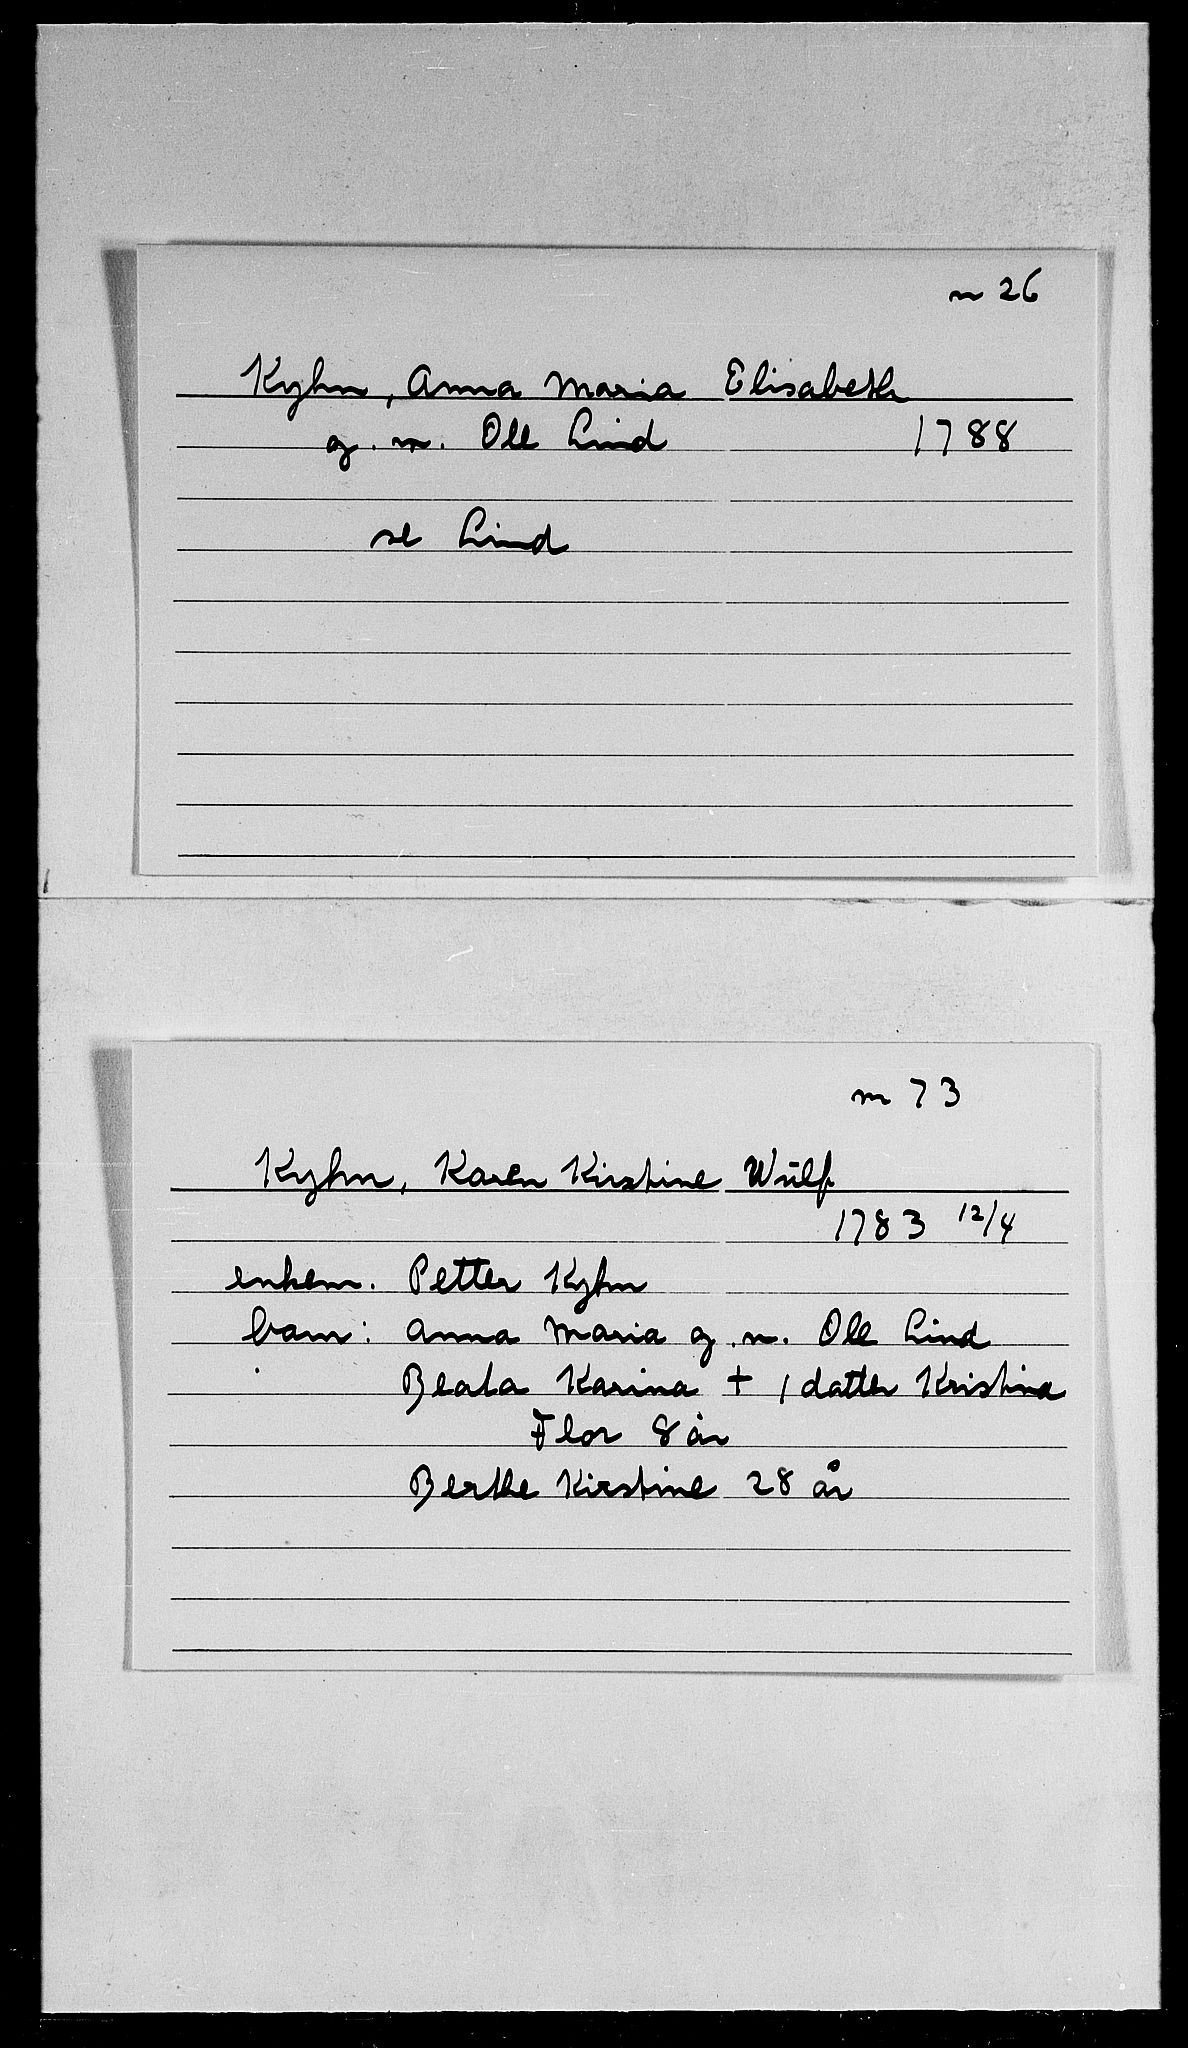 m 26
Kyhn, Anna Maria Elisabeth
g. m. Ole Lind 1788
se Lind
m 73
Kyhn, Karen Kirstine Wülf
1783 12/4
enkem. Petter Kyhn
barn: Anna Maria g. m. Ole Lind
Beata Karina + 1 datter Kristina
Flor 8 år
Berthe Kirstine 28 år